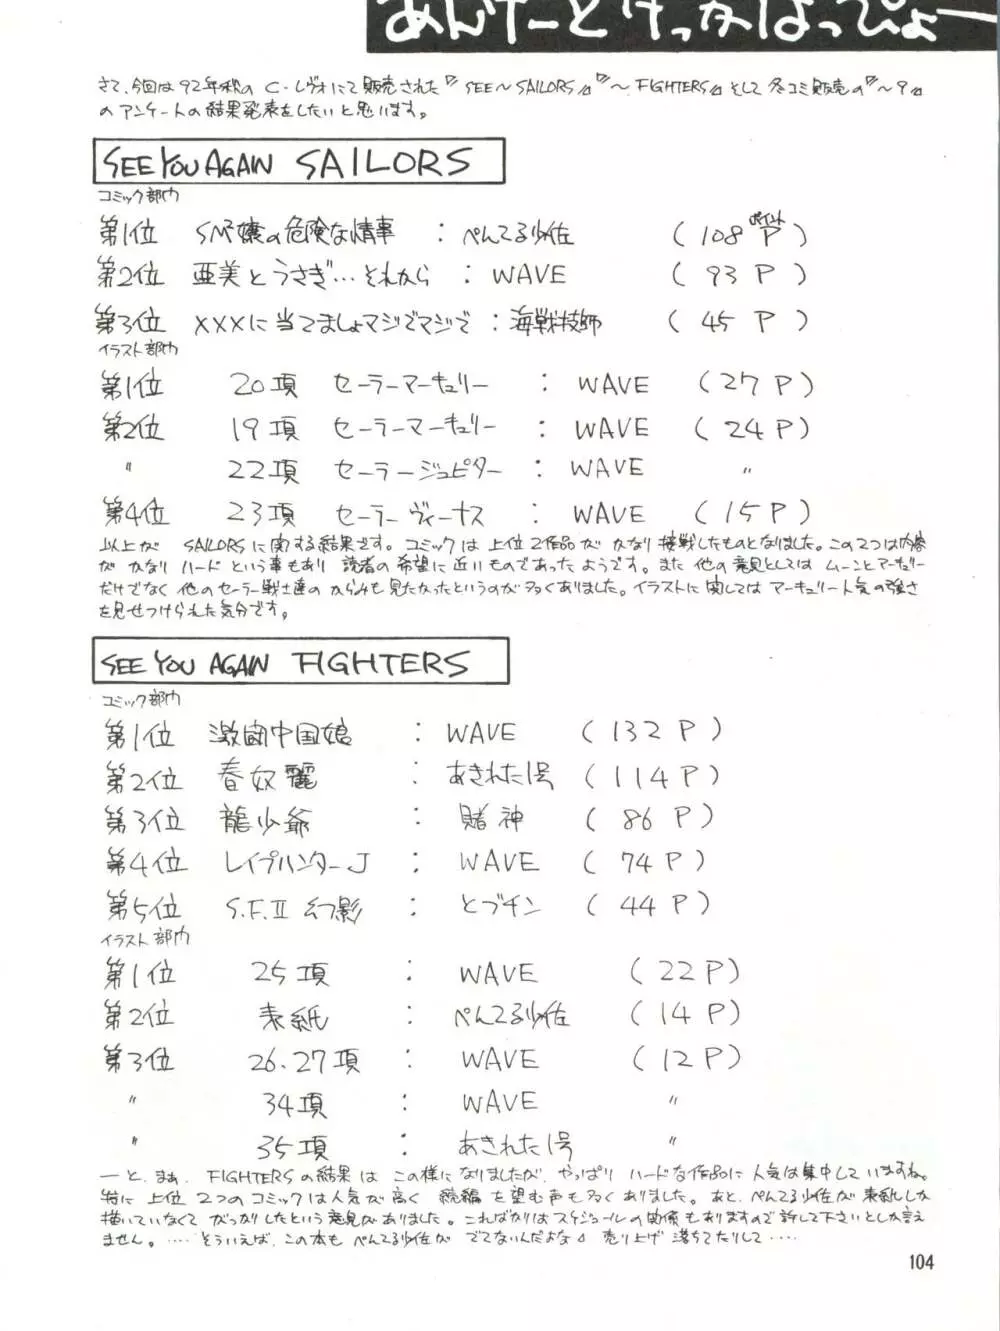 あんけーとけっかはっぴょー
さて、今回は92年秋の C・レヴォにて販売された『SEE～SAILORS』『～FIGHTERS』そして冬コミ販売の『～9』
のアンケートの結果発表をしたいと思います。
SEE YOU AGAIN SAILORS
コミック部門
第1位 SM嬢の危険な情事 : ぺんてる少佐 (108ポイントP)
第2位 亜美とうさぎ…それから : WAVE (93P)
第3位 XXXに当てましょマジでマジで : 海戦技師 (45P)
イラスト部門
第1位 20項 セーラーマーキュリー : WAVE (27P)
第2位 19項 セーラーマーキュリー : WAVE (24P)
〃 22項 セーラージュピター : WAVE 〃
第4位 23項 セーラーヴィーナス : WAVE (15P)
以上が SAILORSに関する結果です。コミックは上位2作品が かなり接戦したものとなりました。この2つは内容
が かなり ハード という事もあり 読者の希望に近いものであったようです。また 他の意見としては ムーンとマーキュリー
だけでなく 他のセーラー戦士達の からみも見たかったというのが多くありました。イラストに関しては マーキュリー人気の強さ
を見せつけられた気分です。
SEE YOU AGAIN FIGHTERS
コミック部門
第1位 激闘中国娘 : WAVE (132P)
第2位 春奴麗 : あきれた1号 (114P)
第3位 龍少爺 : 賭神 (86P)
第4位 レイプハンターJ : WAVE (74P)
第5位 S.F.II 幻影 : とブチン (44P)
イラスト部門
第1位 25項 : WAVE (22P)
第2位 表紙 : ぺんてる少佐 (14P)
第3位 26.27項 : WAVE (12P)
〃 34項 : WAVE 〃
〃 35項 : あきれた1号 〃
ーと、まぁ、FIGHTERSの結果は この様になりましたが、やっぱり ハードな作品に 人気は集中していますね。
特に 上位2つのコミックは人気が高く 続編を望む声も多くありました。あと、ぺんてる少佐が 表紙しか
描いていなくて がっかりしたという意見がありました。こればかりはスケジュールの関係もありますので許して下さいとしか言え
ません。……そういえば、この本も ぺんてる少佐が でてないんだよな 売り上げ落ちてたりして‥‥
104